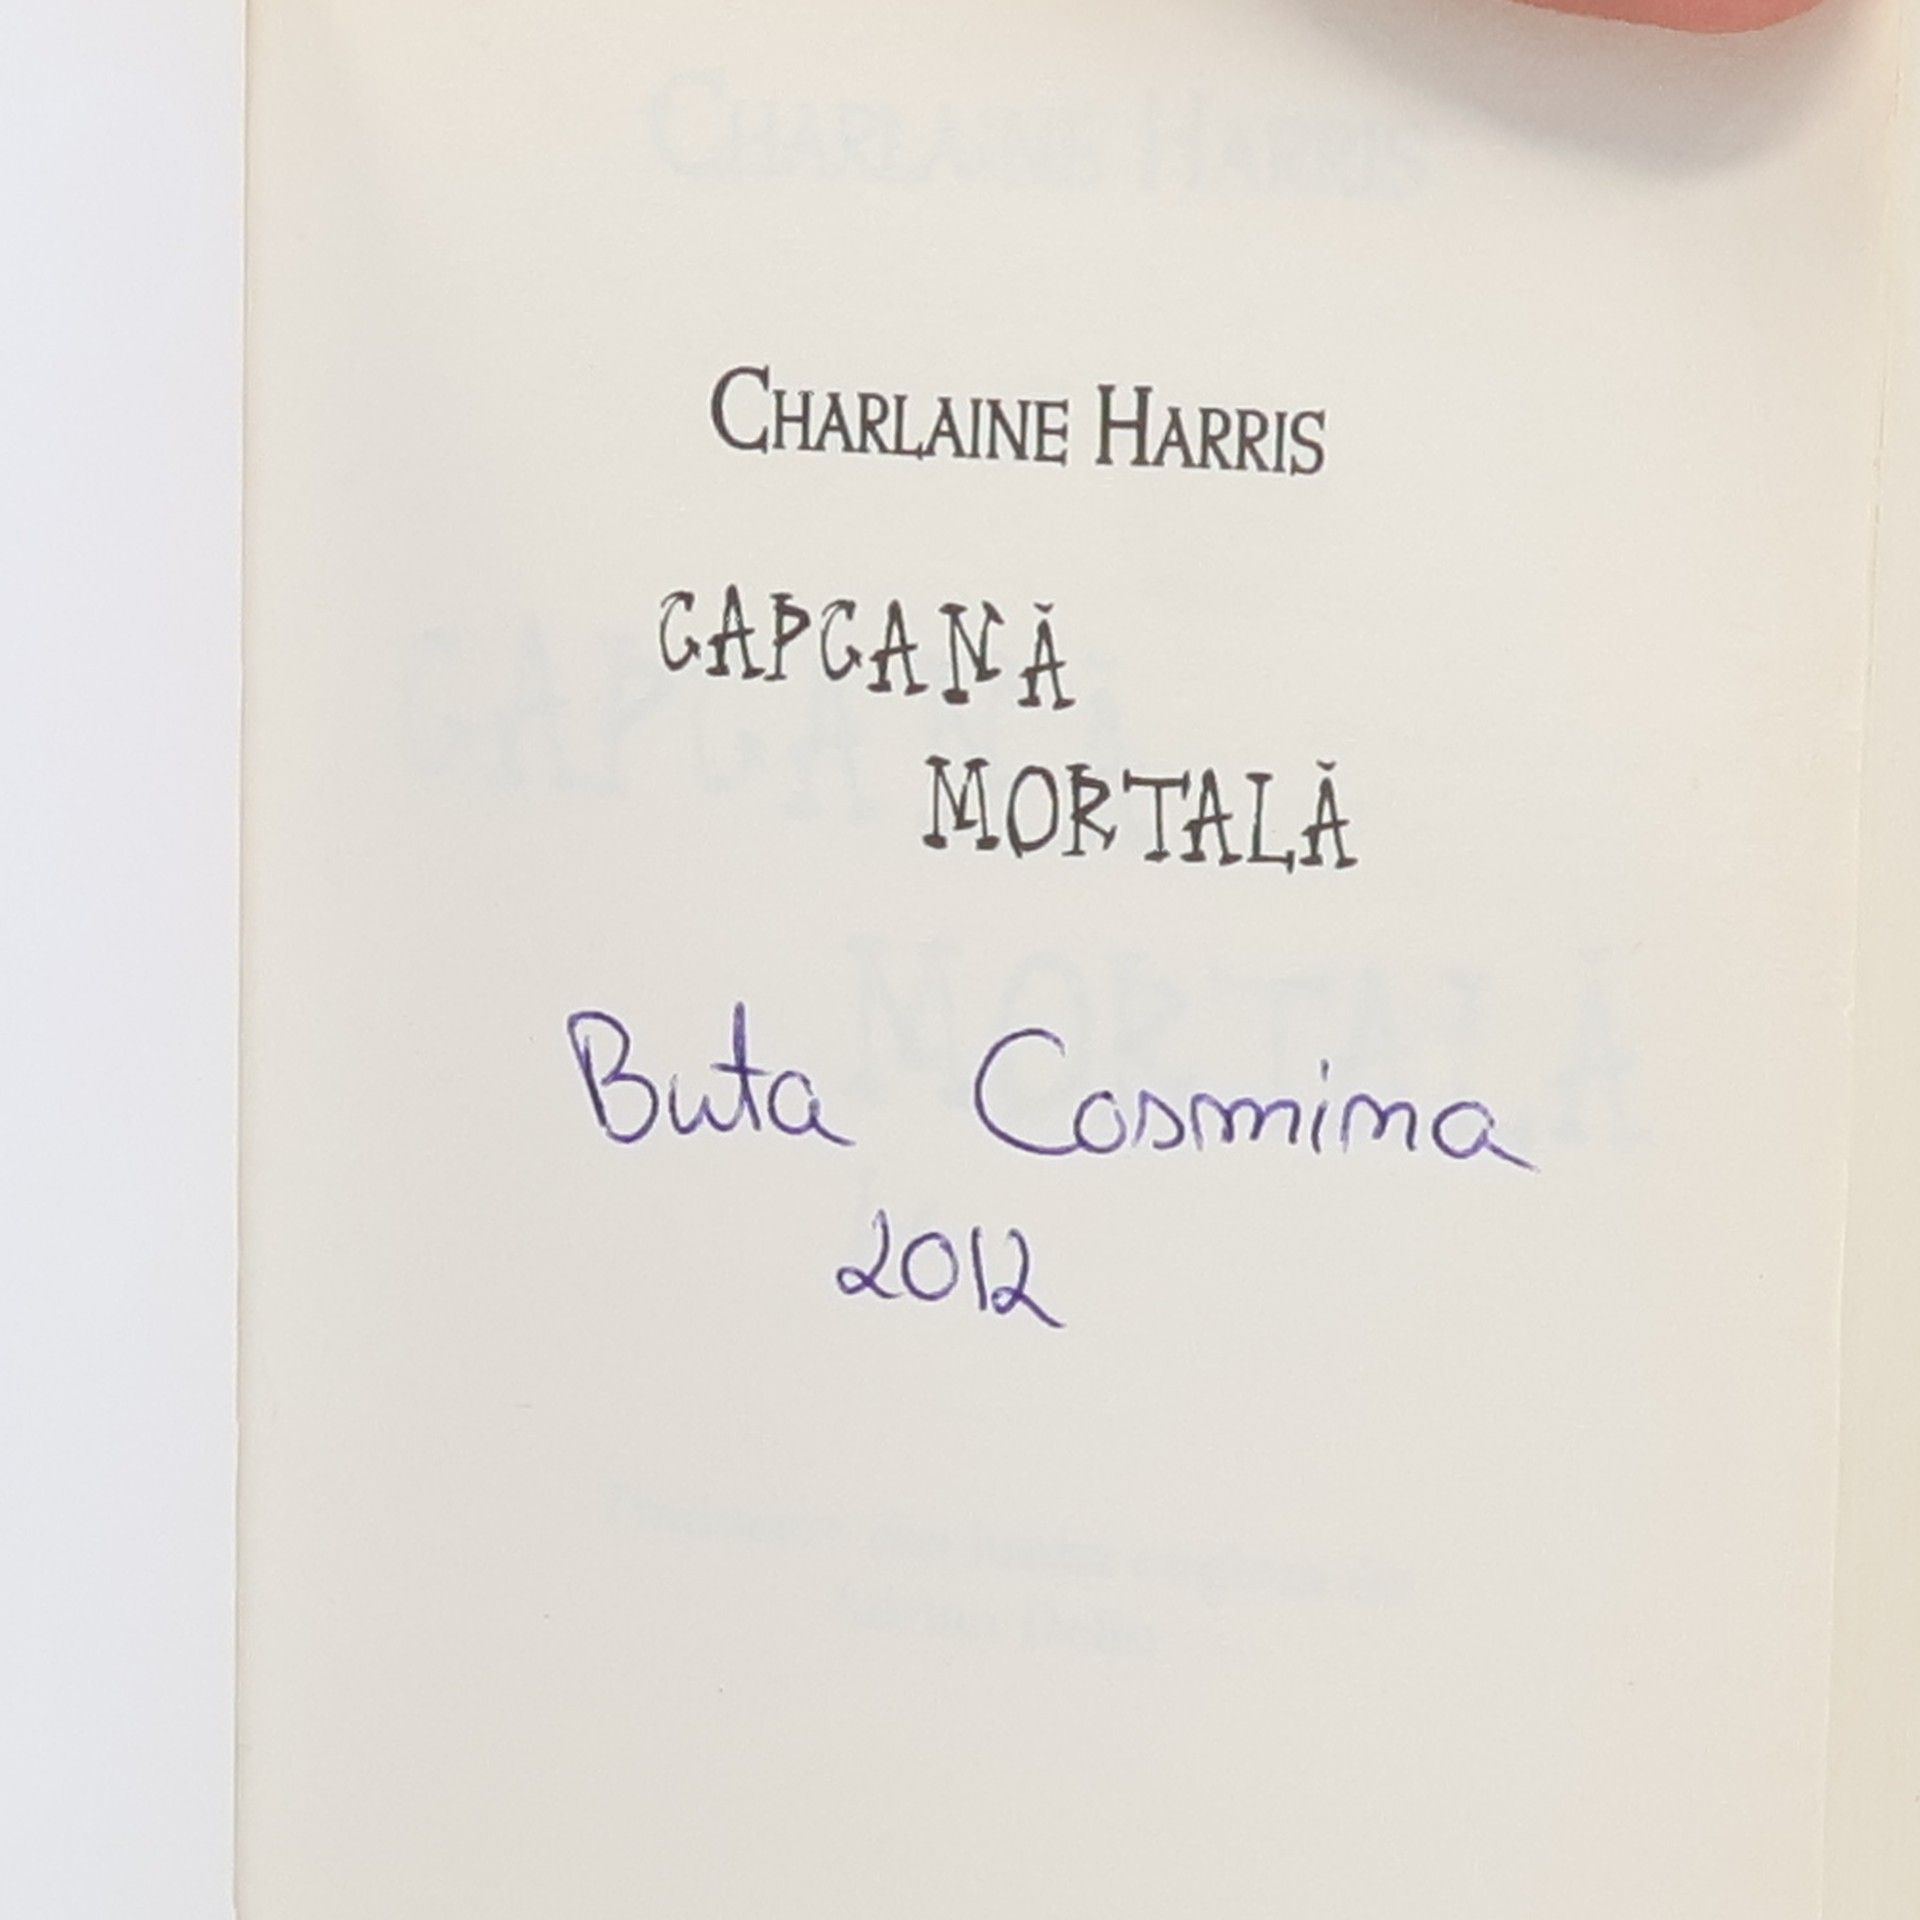 CHARLAINE HARRIS
CAPCANĂ
MORTALĂ
Buta Cosmina
2012